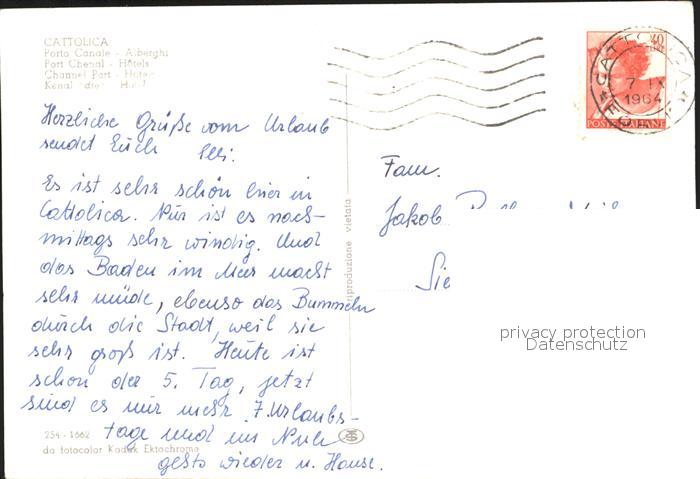 CATTOLICA
Porto Canale - Alberghi
Port Chenal - Hôtels
Channel Port - Hotels
Herzliche Grüße vom Urlaub
sendet Euch Elli.
Es ist sehr schön hier in
Cattolica. Nur ist es nach-
mittags sehr windig. Und
das Baden im Meer macht
sehr müde, ebenso das Bummeln
durch die Stadt, weil sie
sehr groß ist. Heute ist
schon der 5. Tag, jetzt
sind es nur mehr 7 Urlaubs-
tage und im Nu
gehts wieder n. Hause.
254 - 1662
da fotocolor Kodak Ektachrome
riproduzione vietata
40
CATTOLICA
7 IX
1964
POSTE ITALIANE
Fam.
Jakob
privacy protection
Datenschutz